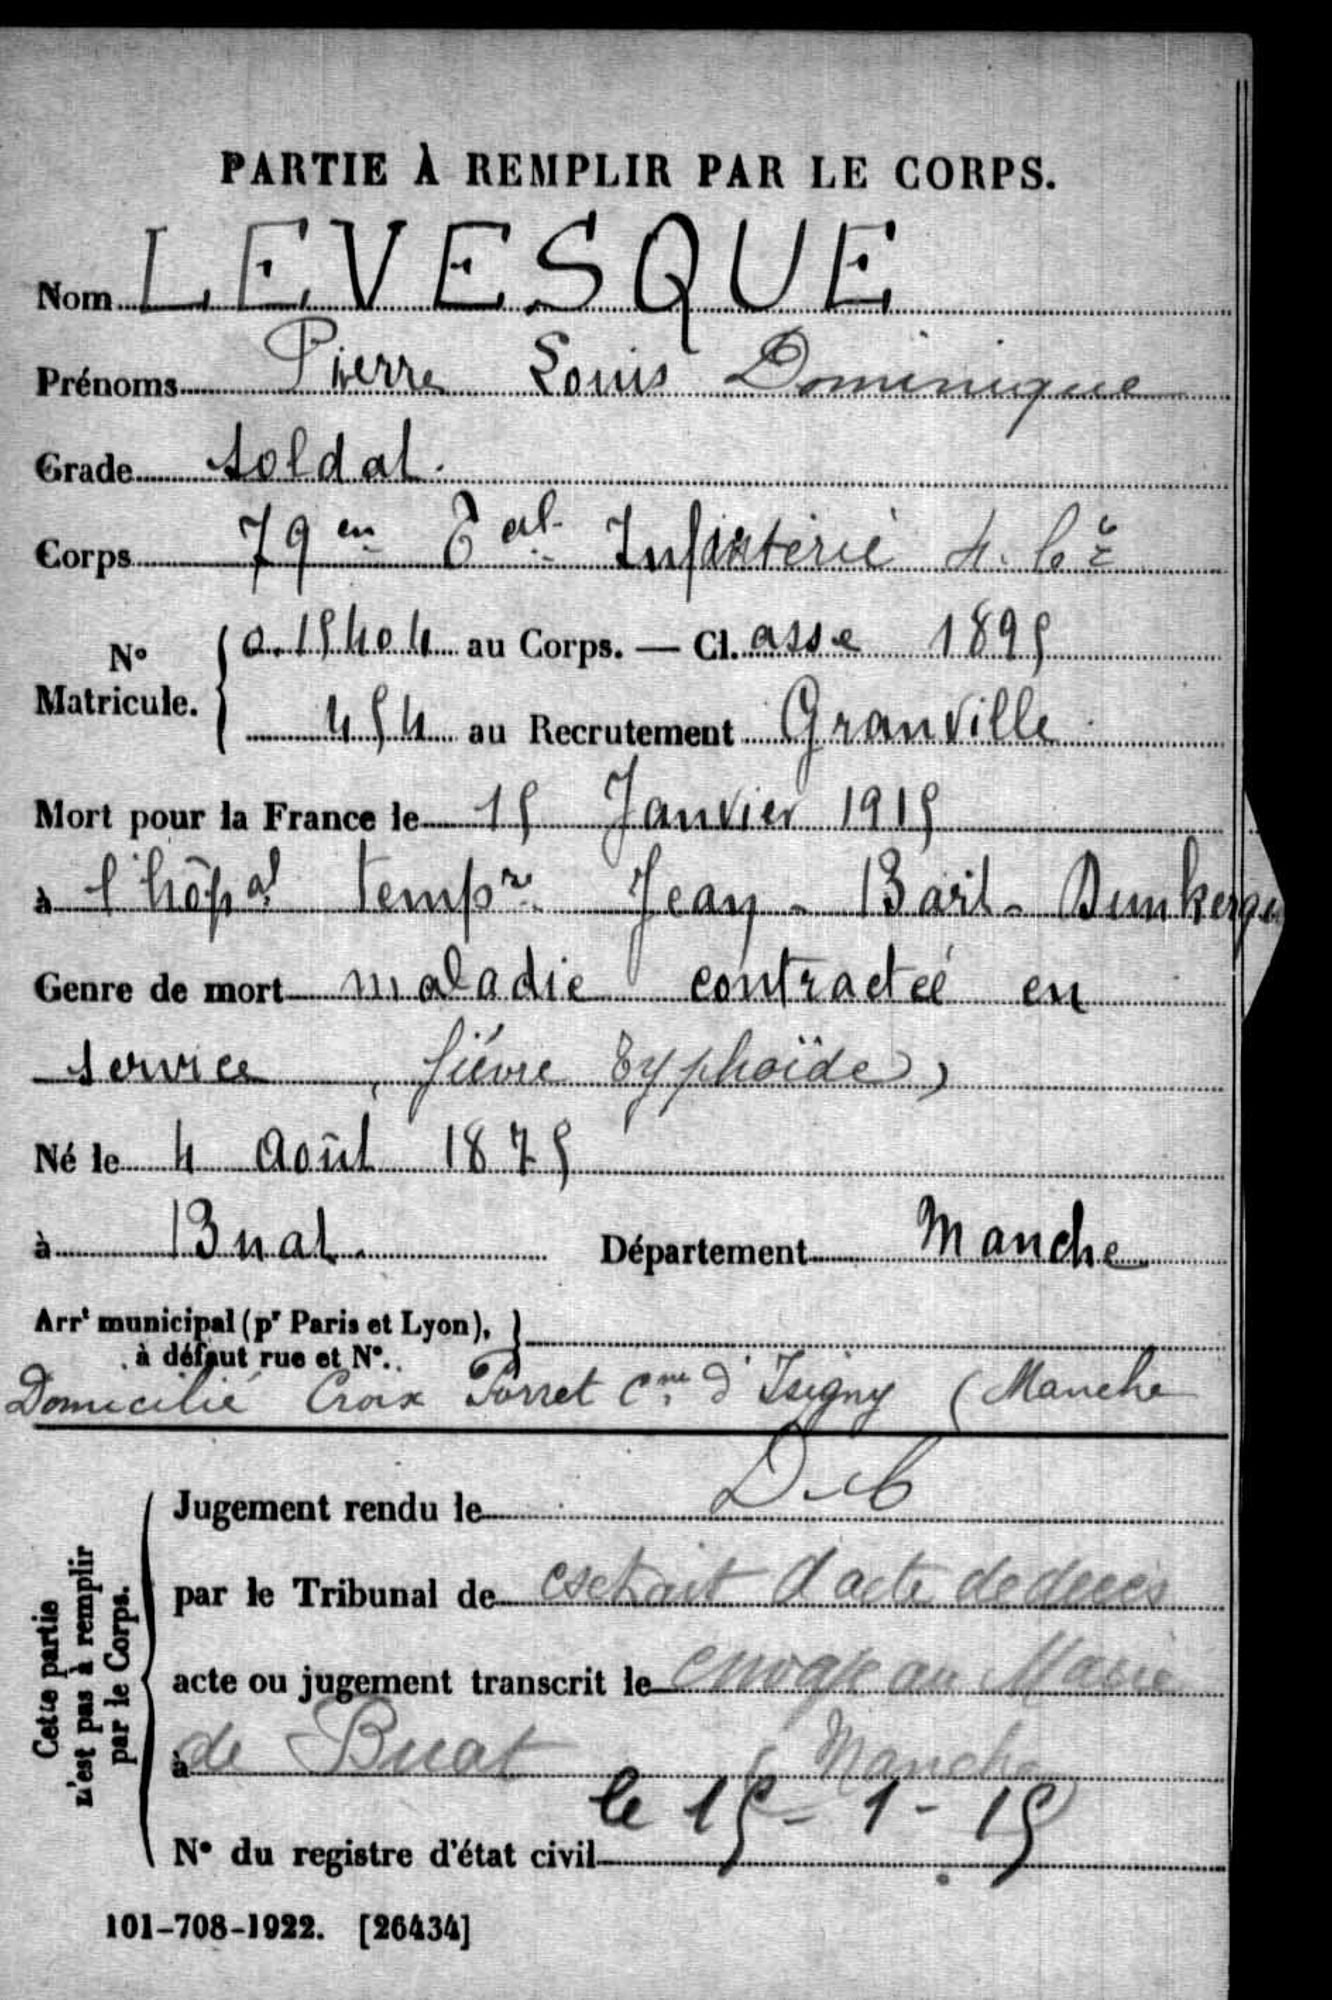 PARTIE À REMPLIR PAR LE CORPS.
Nom LEVESQUE
Prénoms Pierre Louis Dominique
Grade soldat.
Corps 79en Tal Infanterie 4. Cie
N° Matricule. { 0.15404 au Corps. — Cl. asse 1895
454 au Recrutement Granville
Mort pour la France le 15 Janvier 1915
à l'hôpal tempre Jean - Bart - Dunkerque
Genre de mort maladie contractée en
service (fièvre typhoïde)
Né le 4 Août 1875
à Buat Département Manche
Arrt municipal (pr Paris et Lyon), à défaut rue et N°. }
Domicilié Croix Porret Cne d'Isigny (Manche
Cette partie n'est pas à remplir par le Corps.
Jugement rendu le
par le Tribunal de extrait d'acte de deces
acte ou jugement transcrit le envoyé au Maire
à de Buat (Manche)
le 15 - 1 - 15
N° du registre d'état civil
101-708-1922. [26434]